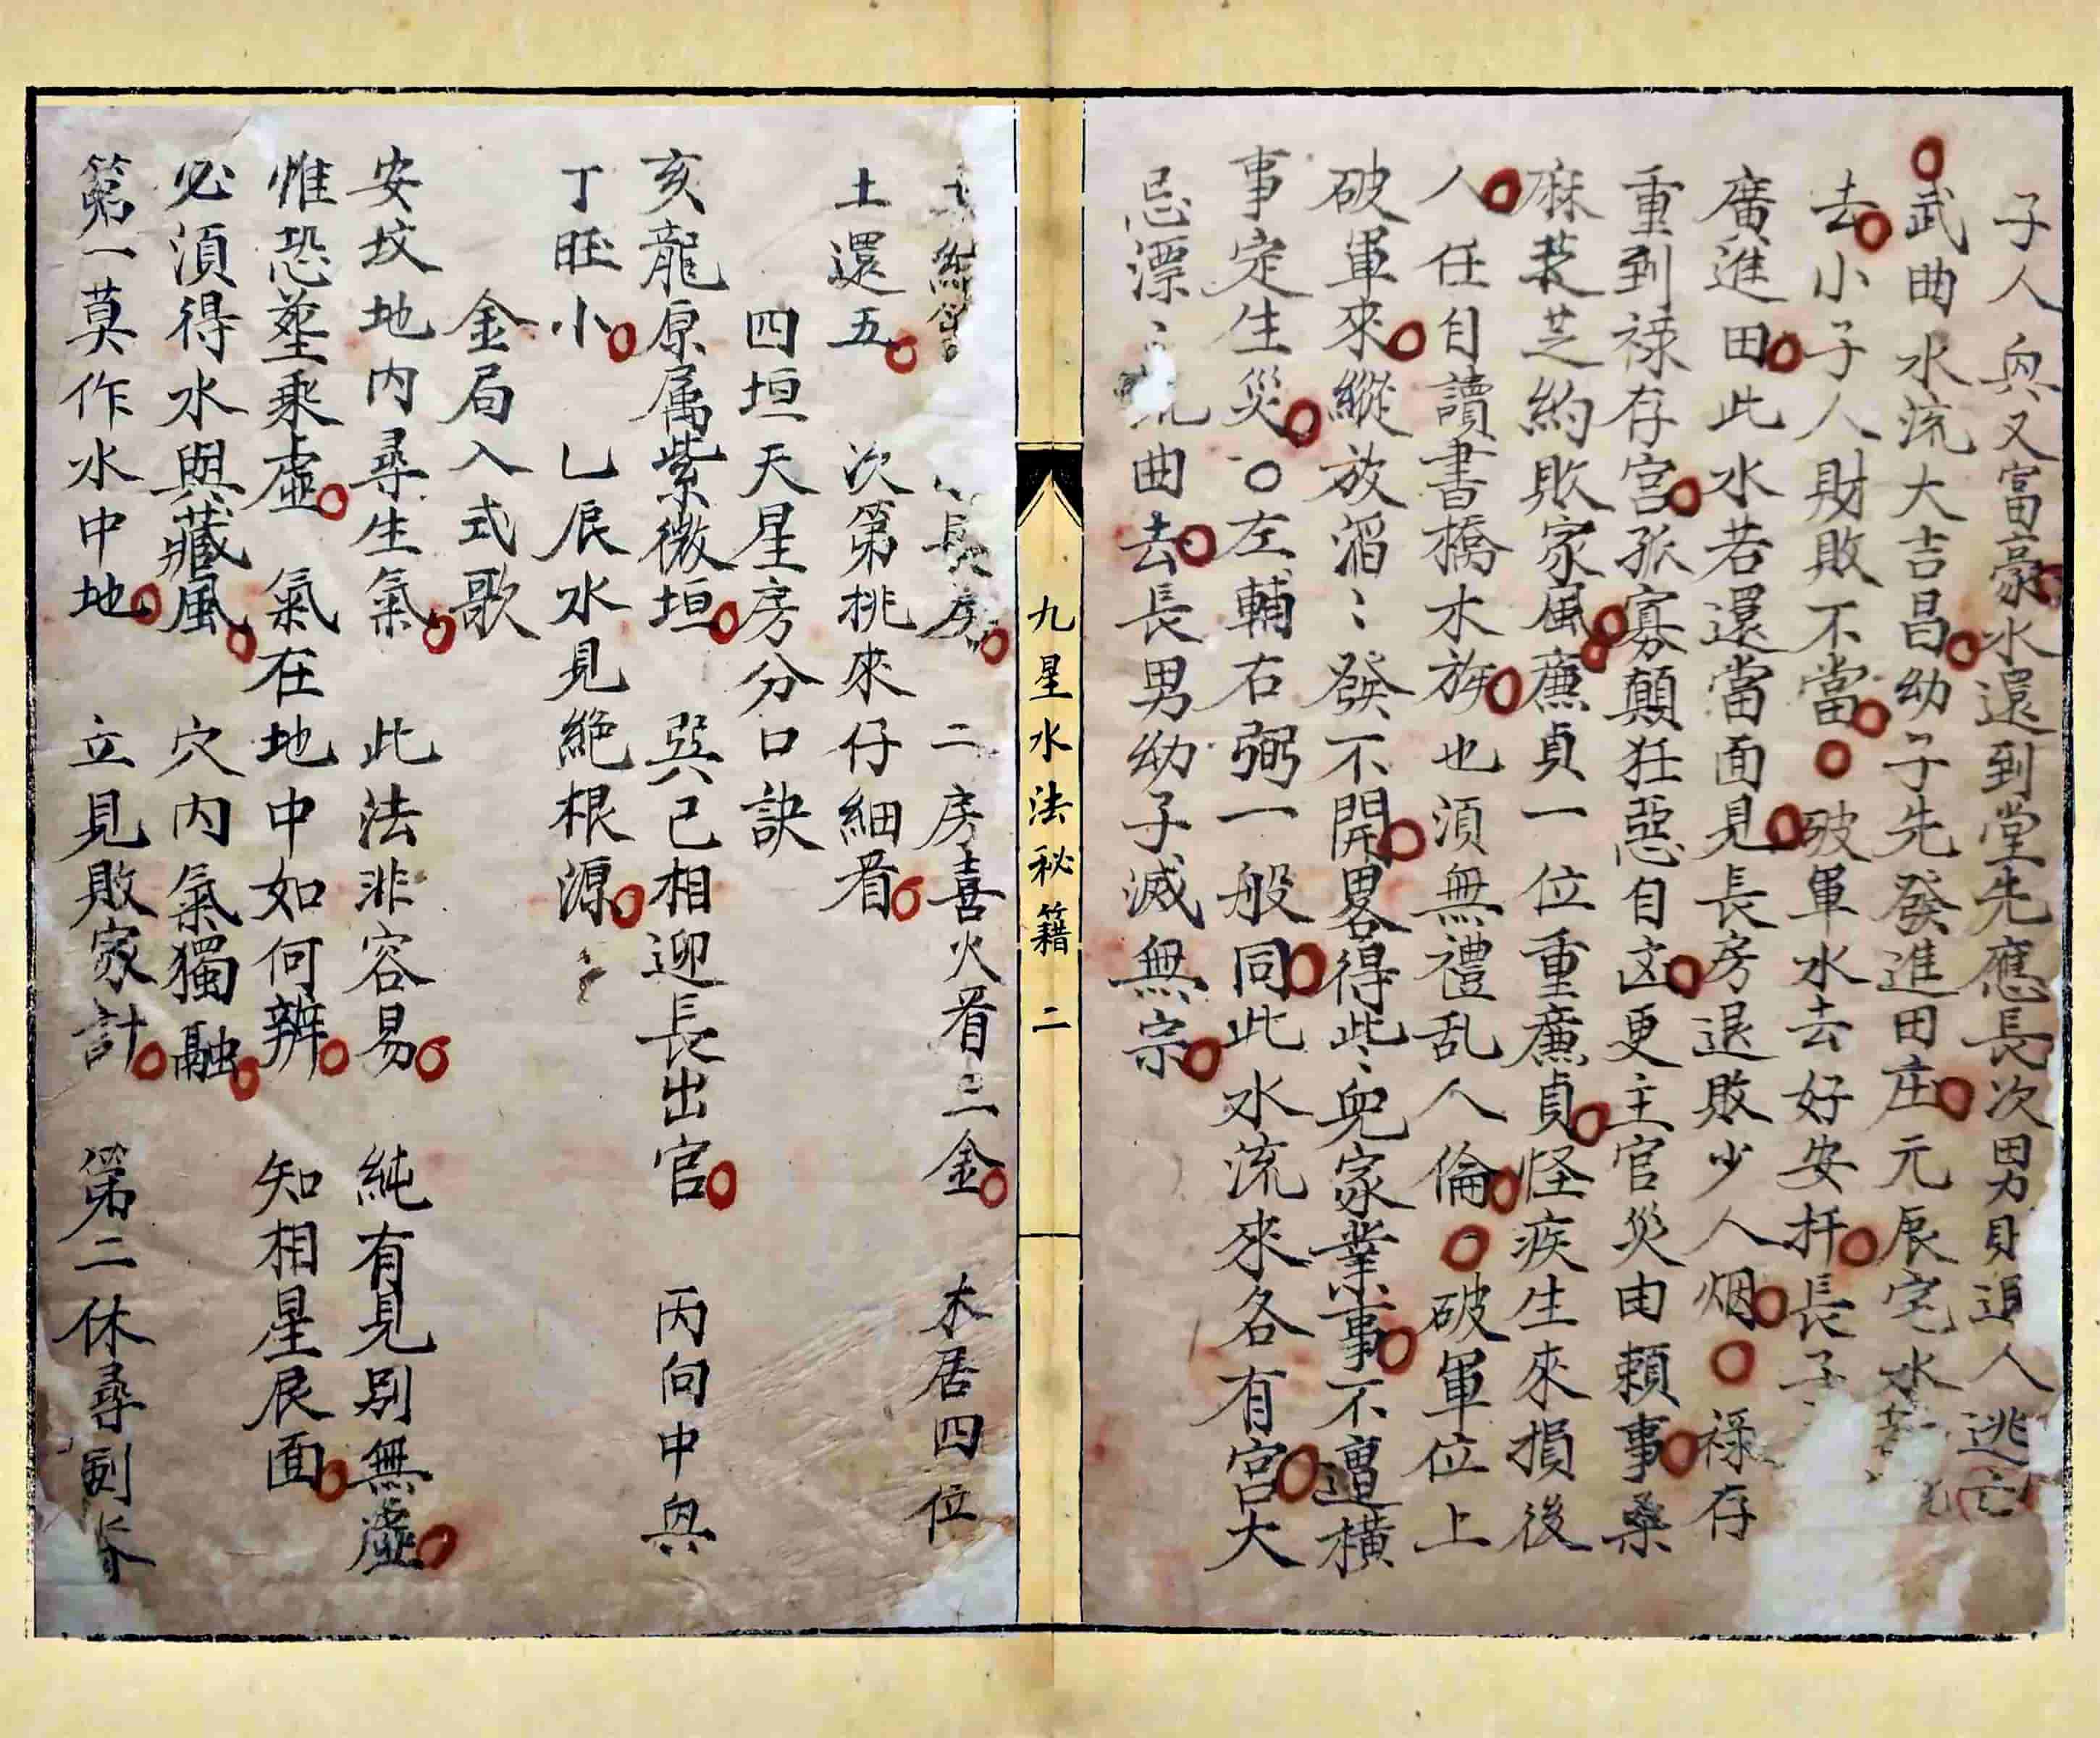 子人與又富豪水還到堂先應長次男退人逃亡
武曲水流大吉昌幼子先發進田庄元辰宅水
去小子人財敗不當破軍水去好安扦長子
廣進田此水若還當面見長房退敗少人烟祿存
重到祿存宮孤寡顛狂惡自凶更主官災由賴事桑
麻芝約敗家風廉貞一位重廉貞怪疾生來損後
人任自讀書橋木族也須無禮乱人倫破軍位上
破軍來縱放滔〻發不開畧得此〻兜家業事不遭橫
事定生災○左輔右弼一般同此水流來各有宮大
忌漂〻曲去長男幼子滅無宗
九星水法秘籍 二
長房 二房喜火看三金 木居四位
土還五 次第挑來仔細看
四垣天星房分口訣
亥龍原属紫微垣 巽巳相迎長出官 丙向中與
丁旺小 乚辰水見絕根源
金局入式歌
安坟地内尋生氣 此法非容易 純有見别無虛
惟恐塟乘虛 氣在地中如何辨 知相星辰面
必須得水與藏風 穴内氣獨融
第一莫作水中地 立見敗家計 第二休尋劍脊